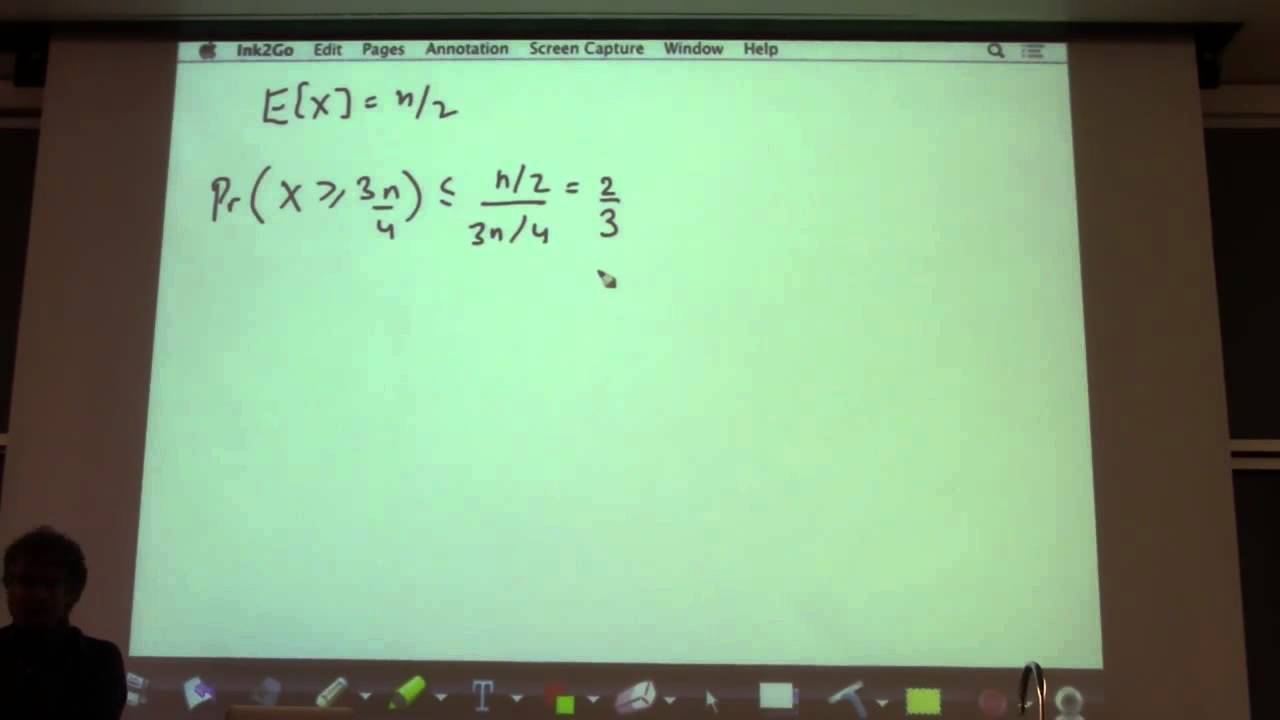 Ink2Go Edit Pages Annotation Screen Capture Window Help
E[X] = n/2
Pr(X ≥ 3n/4) ≤ (n/2)/(3n/4) = 2/3
T